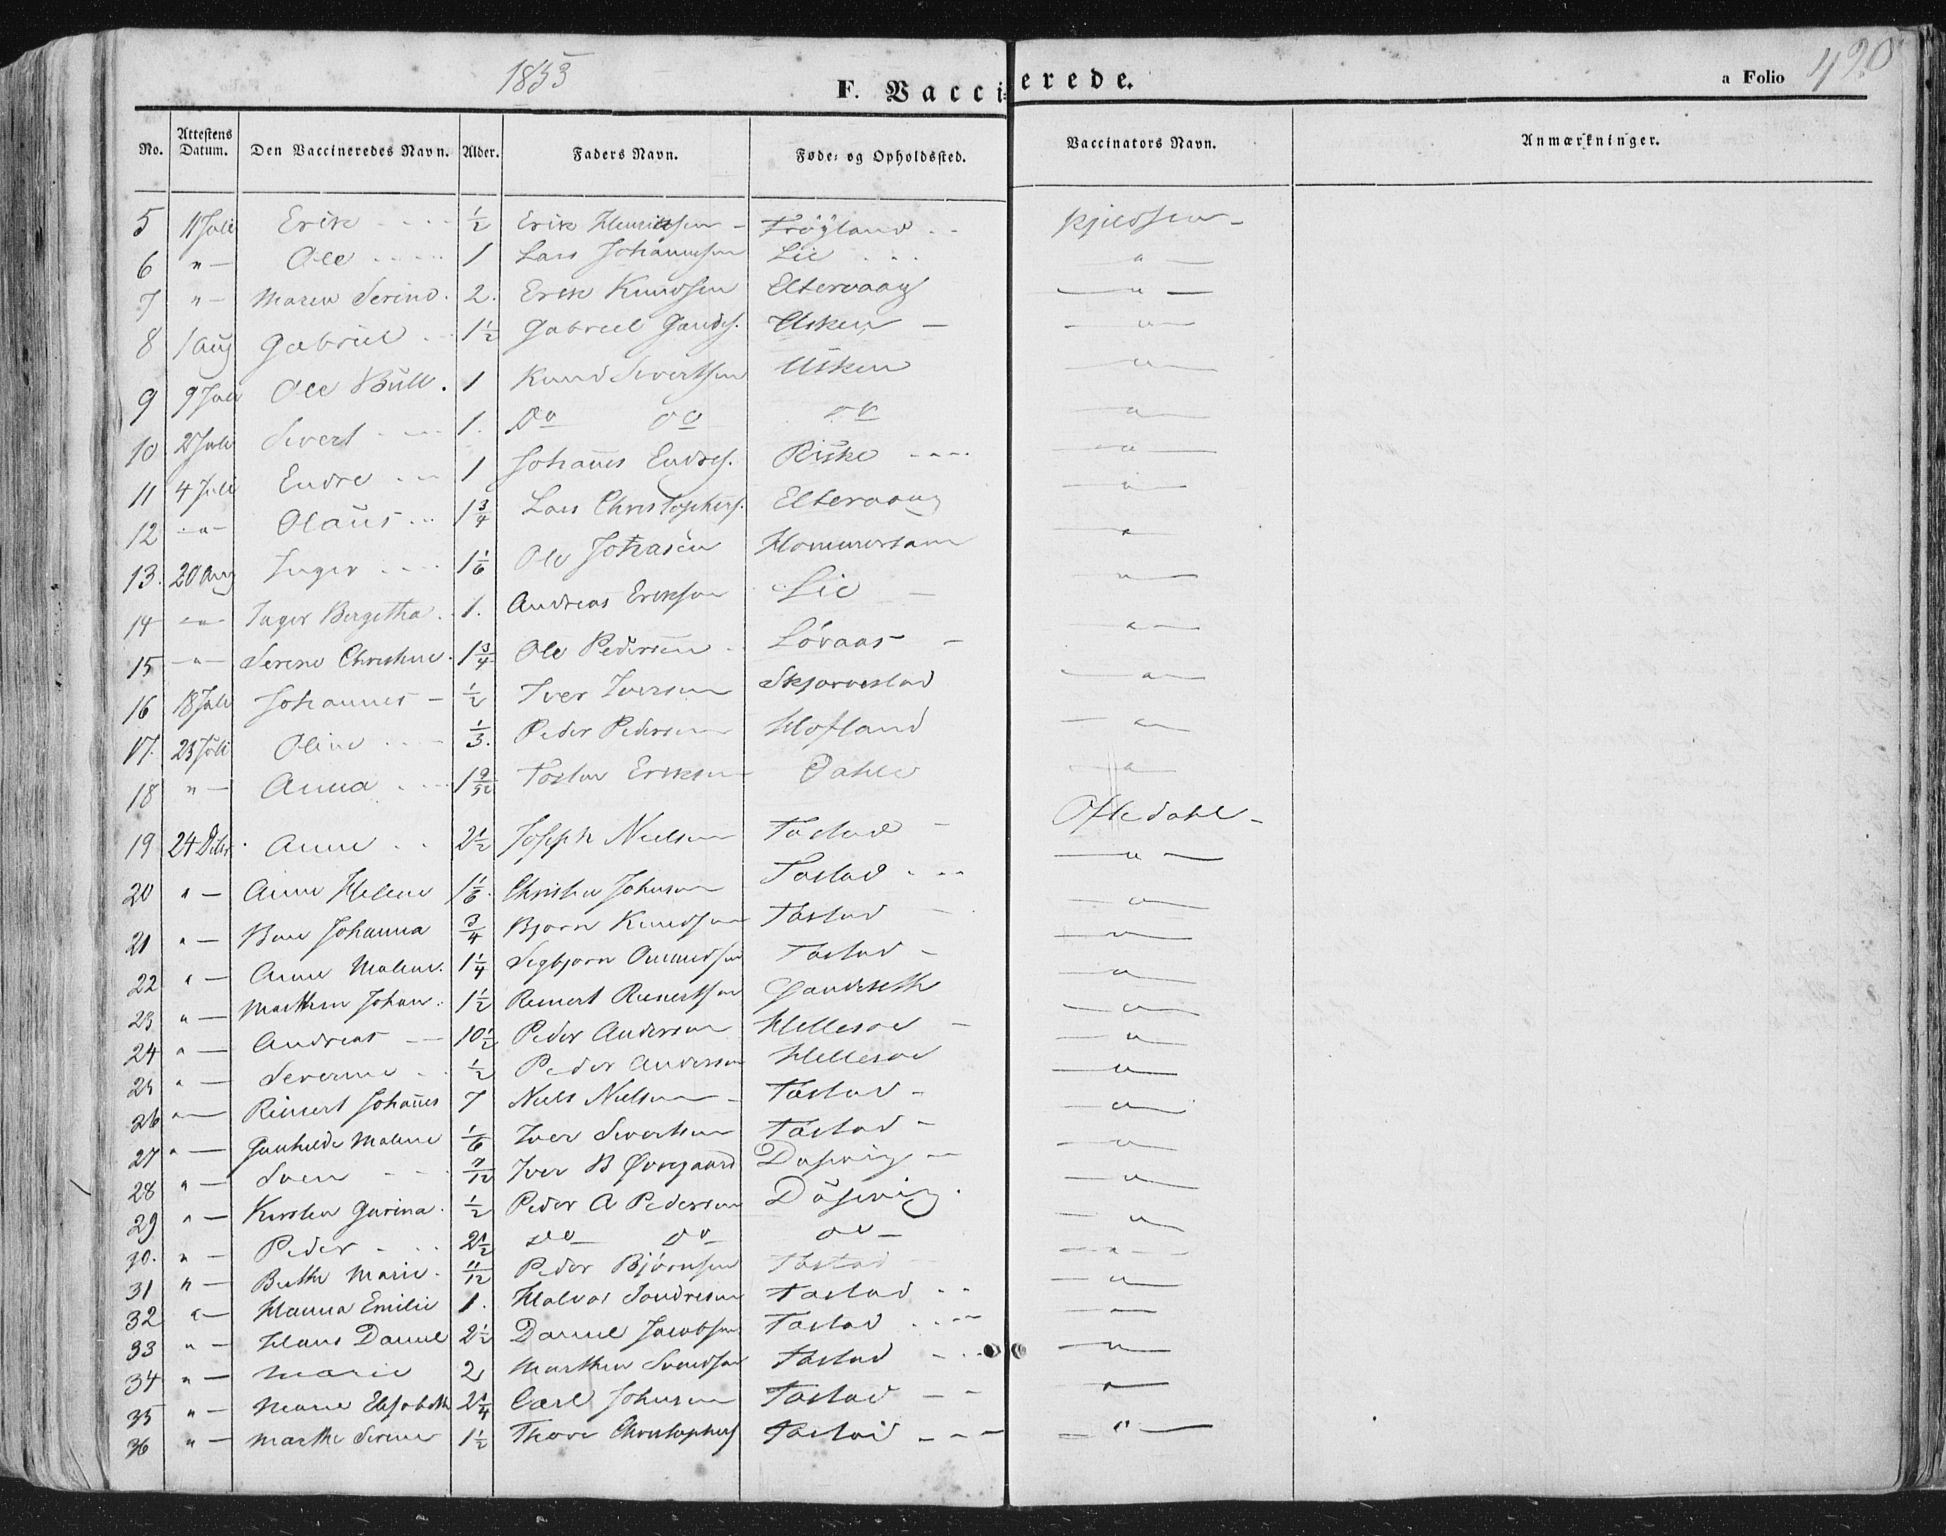 1855
F. Vaccinerede.
a Folio 420
No. Attestens Datum. Den Vaccineredes Navn. Alder. Faders Navn. Føde= og Opholdssted. Vaccinators Navn. Anmærkninger.
5 11 Juli Erik 1/2 Erik Henriksen Frøyland Kjeldsen
6 " — Ole 1 Lars Johannesen Lie — " —
7 " — Maren Serine 2. Erik Knudsen Eltervaag — " —
8 1 Aug Gabriel 1 1/2 Gabriel Gaudes. Usken — — " —
9 9 Juli Ole Bull. 1 Knud Sivertsen Usken — " —
10 2 Juli Sivert 1. Do do do — " —
11 4 Juli Endre 1 Johanes Endres. Riske — " —
12 — " — Olaus 1 3/4 Lars Christophers. Eltervaag — " —
13. 20 Aug Inger 1 1/6 Ole Johasen Hommersam — " —
14 — " — Inger Bergetha 1. Andreas Erikson Lie — — " —
15 — " — Serene Christine 1 3/4 Ole Pedersen Løvaas — — " —
16 18 Juli Johannes — 1/2 Iver Iversen Skjørvestad — " —
17. 23 Juli Oline 1/3. Peder Pedersen Hofland — " —
18 " — Anna 1 9/52 Tostar Eriksen Dahle — " —
19 24 Debr. Anne 2 1/2 Joseph Nielsen Tastad — Oftedahl —
20 " — Anne Helene 1 1/6. Christen Johnsen Tastad — " —
21 " — Johanna 3/4 Bjørn Knudsen Tastad — " —
22 " — Anne Malene. 1 1/4 Segbjørn Amundsen Tastad — — " —
23 " — Marthin Johan. 1 1/2 Reinert Reinertsen Gaudeseth — " —
24 " — Andreas — 10 1/2 Peder Andersen Hellesøe — — " —
25 " — Severine 1/2 Peder Andersen Hellesøe — " —
26 " — Reinert Johanes 7 Niels Nielsen — Tastad — — " —
27 " — Gunhilde Malene 1/6 Iver Sivertsen Tastad — — " —
28 " — Sven 7/12 Iver B Øvregaard Dusevig — — " —
29 " — Kirsten Gurina. 1/2 Peder A Pedersen Dusevig. — " —
30. " — Peder 2 1/2 do do do — — " —
31 " — Berthe Marie. 11/12 Peder Bjørnsen Tastad — " —
32 " — Hanna Emilie 1. Halvor Sondresen Tastad — " —
33 " — Hans Daniel 2 1/2 Daniel Jacobsen Tastad — " —
34 " — Marie 2 Marthin Svendsen Tastad — " —
35 " — Marie Elisabeth 2 1/4 Carl Johnsen Tastad — — — " —
36 " — Marthe Serine 1 1/2 Thore Christophers Tastad — — — — " —